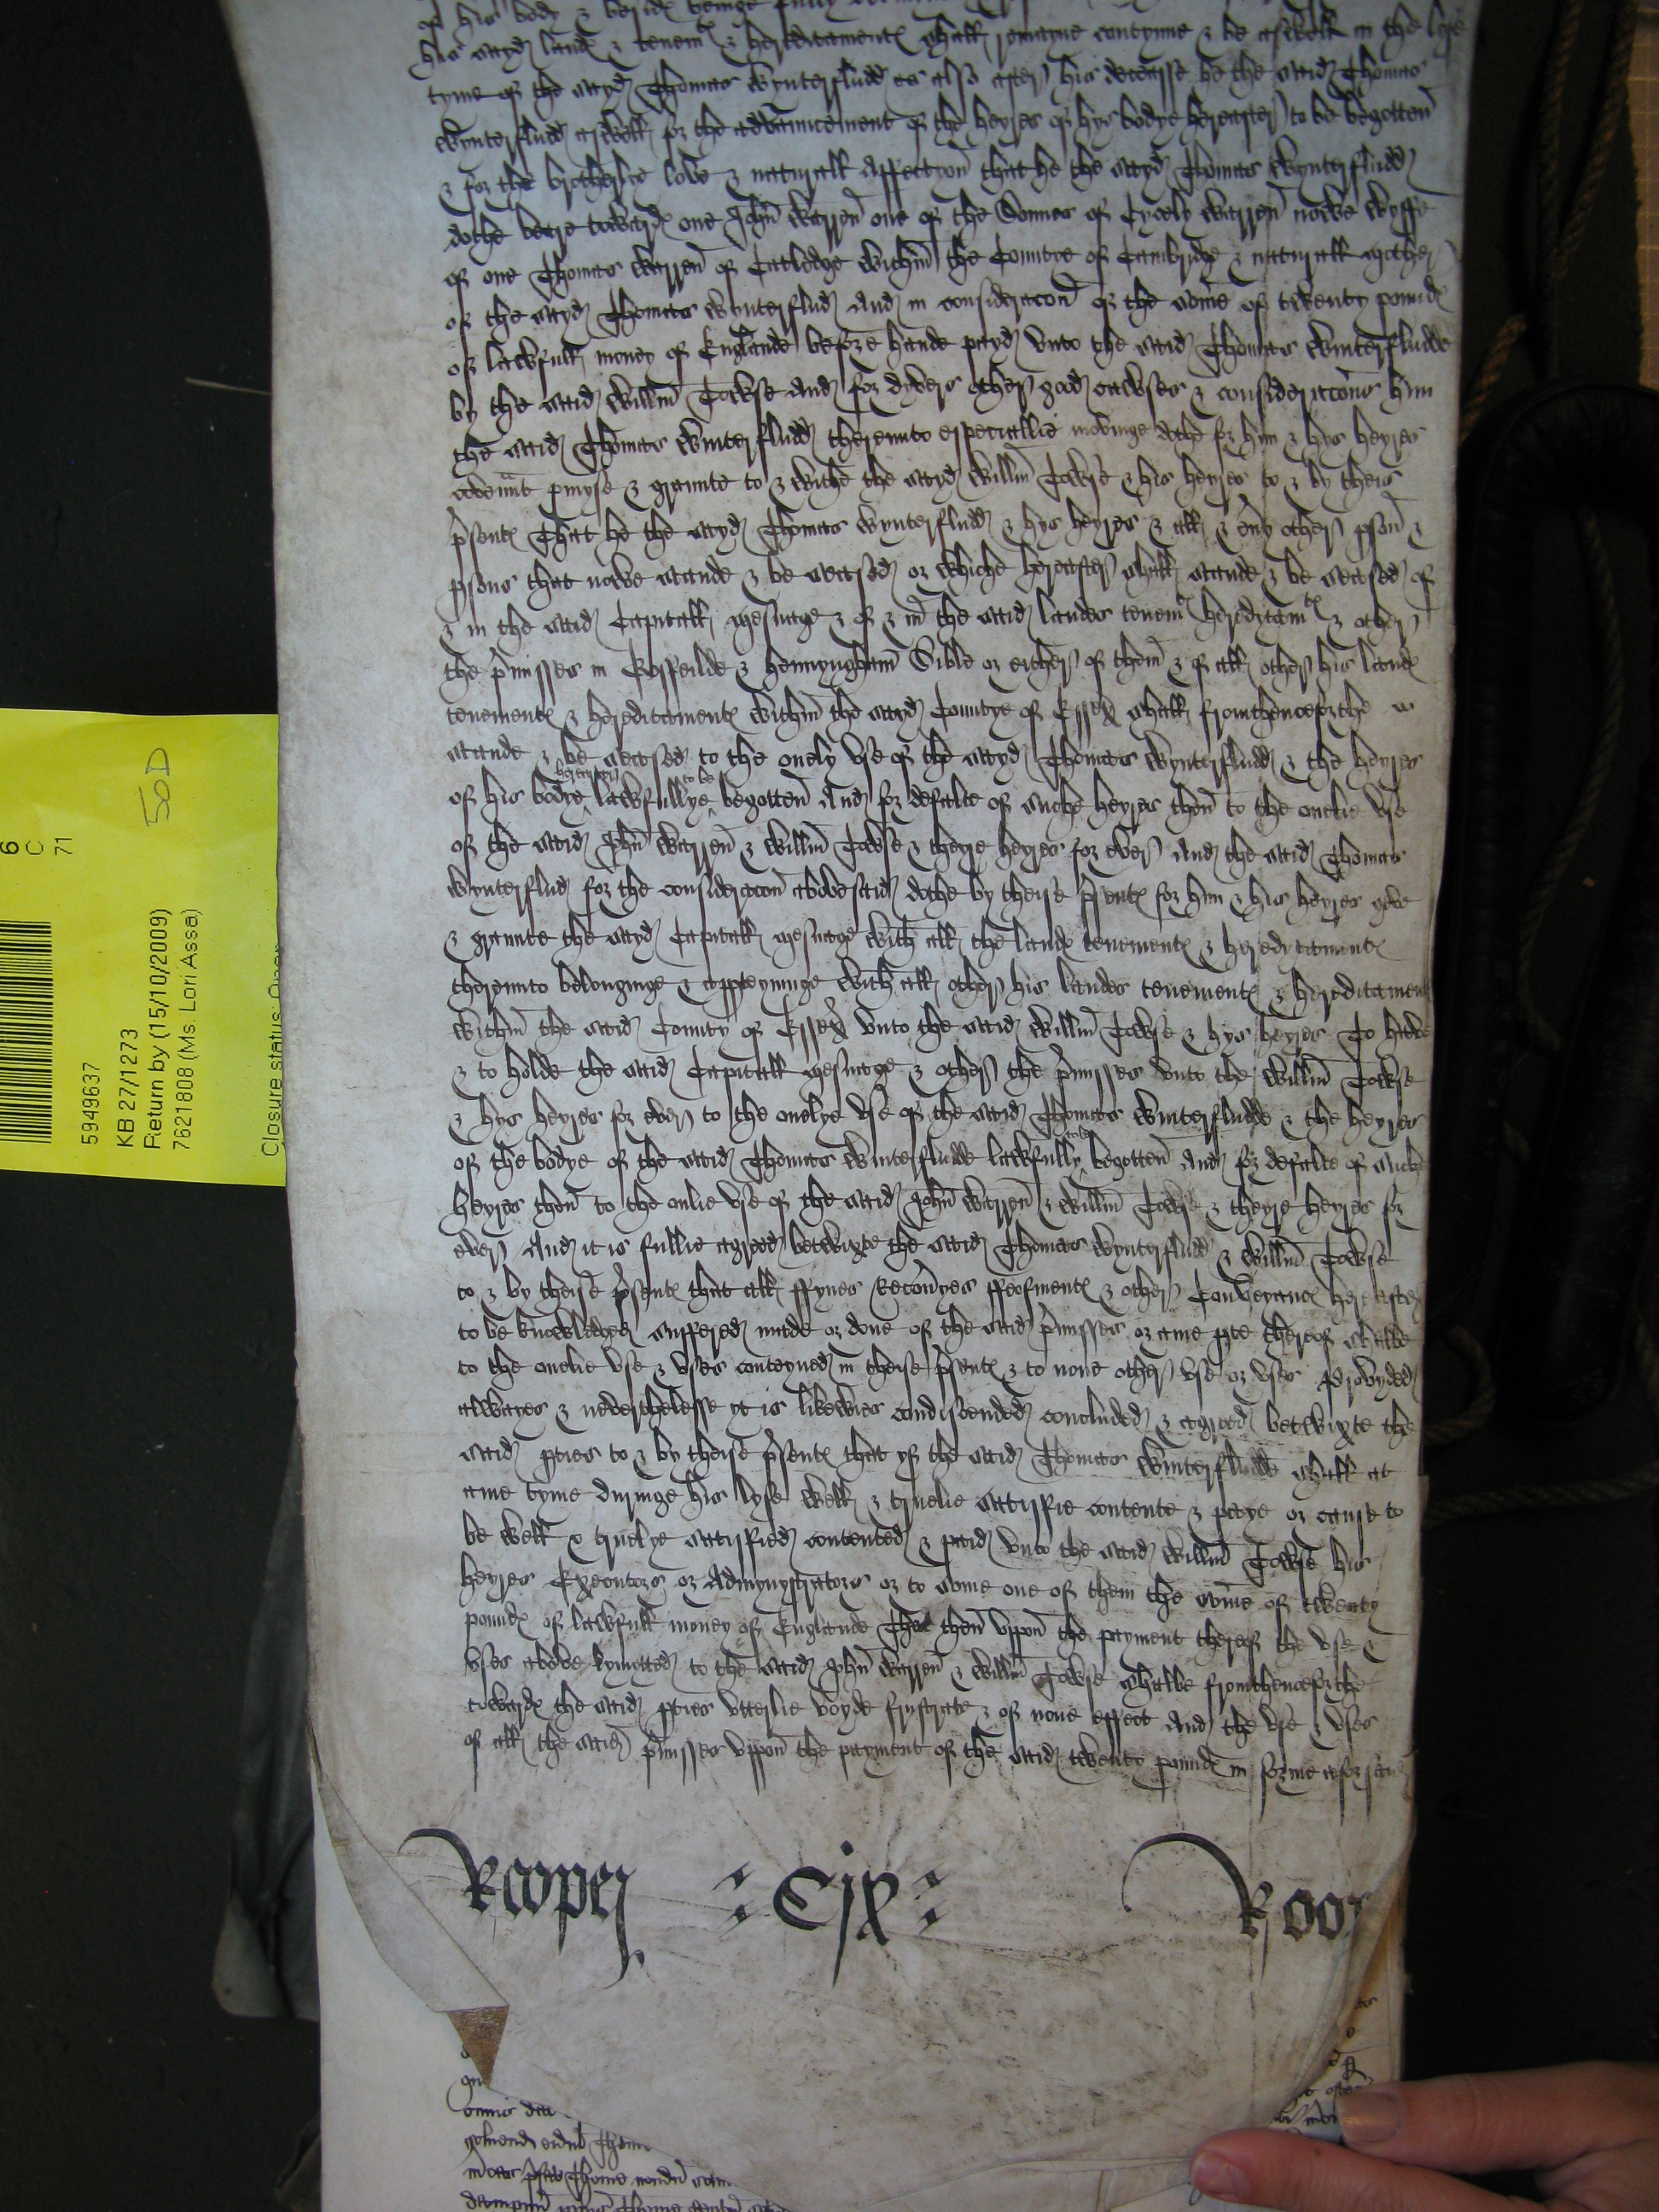 of his body & besides beinge fully
his sayd landes & tenementes & hereditamentes shall remayne contynue & be aswell in the lyfe
tyme of the sayd Thomas Wynterfludd as also after his decesse he the said Thomas
Wynterfludd aswell for the advauncement of the heyres of hys bodye hereafter to be begotten
& for the brotherlye love & naturall affectyon that he the sayd Thomas Wynterfludd
dothe beare towardes one John Warren one of the Sonnes of Cycely Warren nowe wyffe
of one Thomas Warren of Catledge within the Countie of Cambridge & naturall mother
of the sayd Thomas Wynterflud And in consideracon of the some of twenty poundes
of lawfull money of Englande before hande payd unto the said Thomas Winterfludde
by the said Willm Towse And for dyvers other good cawses & consideracons him
the said Thomas Winterfludd thereunto especiallie movinge dothe for him & hys heyres
covenant pmyse & graunte to & withe the sayd Willm Towse & his heyres to & by theis
psentes That he the sayd Thomas Wynterfludd & hys heyres & all & evy other pson &
psons that nowe stande & be seased or whiche hereafter shall stande & be seased of
& in the said Capitall mesuage & of & in the said landes tenemtes hereditamtes & other
the pmisses in & Hennyngham Sible or either of them & of all other his landes
tenementes & hereditamentes within the sayd Countye of Essex shall fromthenceforthe
stande & be seased to the onely use of the sayd Thomas Wynterfludd & the heyres
of his bodye begotten lawfullye to be begotten And for defalte of suche heyres then to the onelie use
of the said John Warren & Willm Towse & theyre heyres for ever And the said Thomas
Wynterflud for the consideracon abovesaid dothe by theise psentes for him & his heyres geve
& graunte the sayd Capitall mesuage with all the landes tenementes & heredytamentes
thereunto belonginge & appteyninge with all other his landes tenementes & hereditamentes
within the said County of Essex unto the said Willm Towse & hys heyres To have
& to holde the said Capitall mesuage & other the pmisses unto the Willm Towse
& hys heyres for ever to the onelye use of the said Thomas Winterfludde & the heyres
of the bodye of the said Thomas Winterfludde lawfully to be begotten And for defalte of suche
heyres then to the onlie use of the said John Warren & Willm Towse & theyre heyres for
ever And it is fullie agreed betwixte the said Thomas Wynterfludd & Willm Towse
to & by theise psentes that all ffynes Recoveryes ffeofmentes & other Conveyances hereafter
to be knowledged suffered made or done of the said pmisses or anie pte thereof shalbe
to the onelie use & uses conteyned in theise psentes & to none other use or uses Provyded
alwayes & neverthelesse yt is likewies condiscended concluded & agreed betwixte the
said pties to & by theise psentes that yf the said Thomas Winterfludde shall at
anie tyme duringe his lyfe well & truelie satisfie contente & paye or cause to
be well & truelye satisfied contented & paid unto the said Willm Towse his
heyres Executors or Admynystrators or to some one of them the some of twenty
poundes of lawfull money of Englande That then uppon the payment thereof the use &
uses above lymytted to the said John Warren & Willm Towse shalbe fromthenceforthe
towardes the said pties utterlie voyde frustrate & of none effect And the use & uses
of all the said pmisses uppon the payment of the said twenty poundes in forme aforsaid
Rooper
Cix
Roop
6
C
71
50D
5949637
KB 27/1273
Return by (15/10/2009)
7621808 (Ms. Lori Assa)
Closure status: Open